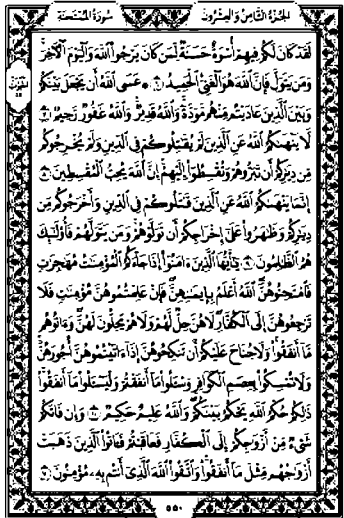 الجزء الثامن والعشرون
سورة الممتحنة
لَقَدْ كَانَ لَكُمْ فِيهِمْ أُسْوَةٌ حَسَنَةٌ لِّمَن كَانَ يَرْجُوا۟ ٱللَّهَ وَٱلْيَوْمَ ٱلْءَاخِرَ
وَمَن يَتَوَلَّ فَإِنَّ ٱللَّهَ هُوَ ٱلْغَنِىُّ ٱلْحَمِيدُ ٦ ۞ عَسَى ٱللَّهُ أَن يَجْعَلَ بَيْنَكُمْ
وَبَيْنَ ٱلَّذِينَ عَادَيْتُم مِّنْهُم مَّوَدَّةً وَٱللَّهُ قَدِيرٌ وَٱللَّهُ غَفُورٌ رَّحِيمٌ ٧
لَّا يَنْهَىٰكُمُ ٱللَّهُ عَنِ ٱلَّذِينَ لَمْ يُقَٰتِلُوكُمْ فِى ٱلدِّينِ وَلَمْ يُخْرِجُوكُم
مِّن دِيَٰرِكُمْ أَن تَبَرُّوهُمْ وَتُقْسِطُوٓا۟ إِلَيْهِمْ إِنَّ ٱللَّهَ يُحِبُّ ٱلْمُقْسِطِينَ ٨
إِنَّمَا يَنْهَىٰكُمُ ٱللَّهُ عَنِ ٱلَّذِينَ قَٰتَلُوكُمْ فِى ٱلدِّينِ وَأَخْرَجُوكُم مِّن
دِيَٰرِكُمْ وَظَٰهَرُوا۟ عَلَىٰٓ إِخْرَاجِكُمْ أَن تَوَلَّوْهُمْ وَمَن يَتَوَلَّهُمْ فَأُو۟لَٰٓئِكَ
هُمُ ٱلظَّٰلِمُونَ ٩ يَٰٓأَيُّهَا ٱلَّذِينَ ءَامَنُوٓا۟ إِذَا جَآءَكُمُ ٱلْمُؤْمِنَٰتُ مُهَٰجِرَٰتٍ
فَٱمْتَحِنُوهُنَّ ٱللَّهُ أَعْلَمُ بِإِيمَٰنِهِنَّ فَإِنْ عَلِمْتُمُوهُنَّ مُؤْمِنَٰتٍ فَلَا
تَرْجِعُوهُنَّ إِلَى ٱلْكُفَّارِ لَا هُنَّ حِلٌّ لَّهُمْ وَلَا هُمْ يَحِلُّونَ لَهُنَّ وَءَاتُوهُم
مَّآ أَنفَقُوا۟ وَلَا جُنَاحَ عَلَيْكُمْ أَن تَنكِحُوهُنَّ إِذَآ ءَاتَيْتُمُوهُنَّ أُجُورَهُنَّ
وَلَا تُمْسِكُوا۟ بِعِصَمِ ٱلْكَوَافِرِ وَسْـَٔلُوا۟ مَآ أَنفَقْتُمْ وَلْيَسْـَٔلُوا۟ مَآ أَنفَقُوا۟
ذَٰلِكُمْ حُكْمُ ٱللَّهِ يَحْكُمُ بَيْنَكُمْ وَٱللَّهُ عَلِيمٌ حَكِيمٌ ١٠ وَإِن فَاتَكُمْ
شَىْءٌ مِّنْ أَزْوَٰجِكُمْ إِلَى ٱلْكُفَّارِ فَعَاقَبْتُمْ فَـَٔاتُوا۟ ٱلَّذِينَ ذَهَبَتْ
أَزْوَٰجُهُم مِّثْلَ مَآ أَنفَقُوا۟ وَٱتَّقُوا۟ ٱللَّهَ ٱلَّذِىٓ أَنتُم بِهِۦ مُؤْمِنُونَ ١١
٥٥٠